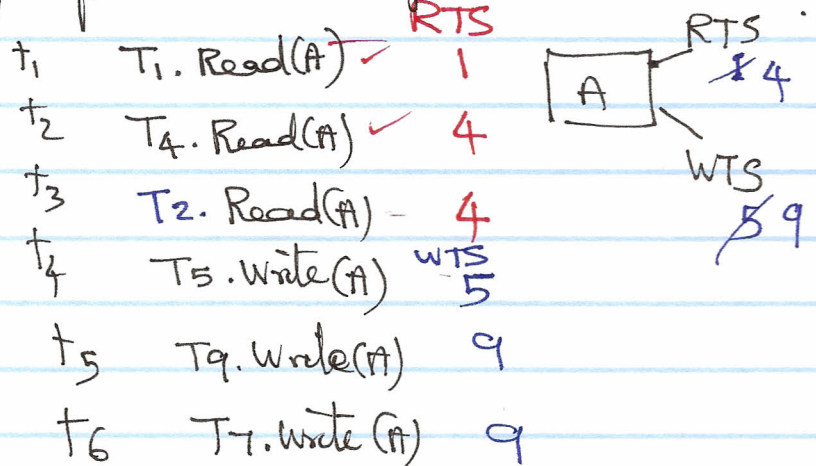 RTS
t1 T1. Read(A) ✓ 1
t2 T4. Read(A) ✓ 4
t3 T2. Read(A) - 4
WTS
t4 T5. Write(A) 5
t5 T9. Write(A) 9
t6 T7. Write(A) 9
RTS
A 1 4
WTS
5 9